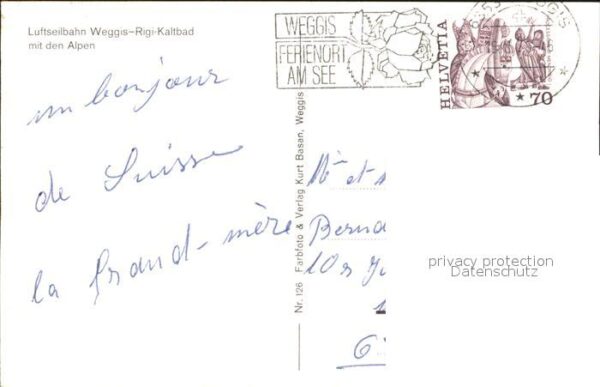 Luftseilbahn Weggis-Rigi-Kaltbad
mit den Alpen
WEGGIS
FERIENORT
AM SEE
HELVETIA
70
un bonjour
de Suisse
la Grand-mère
Nr. 126 Farbfoto & Verlag Kurt Basan, Weggis
et
Berna
privacy protection
Datenschutz